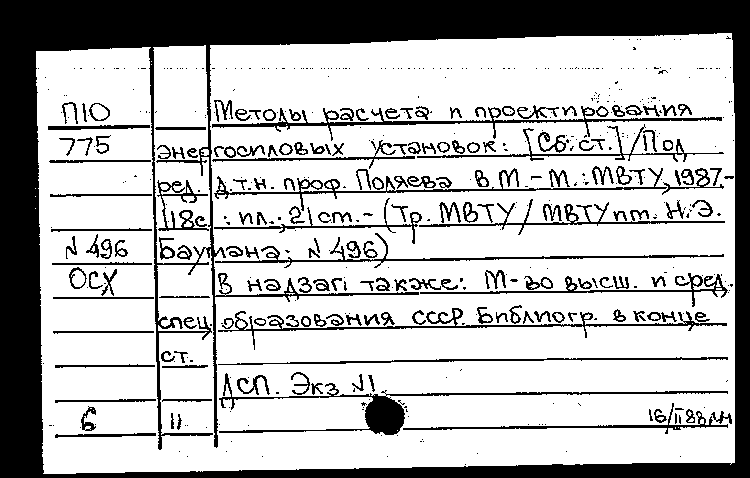 П10 Методы расчета и проектирования
775 энергосиловых установок: [Сб. ст.] /Под
ред. д.т.н. проф. Поляева В.М. - М.: МВТУ, 1987.-
118с. : ил.; 21 см. - (Тр. МВТУ / МВТУ им. Н.Э.
N 496 Баумана; N 496)
ОСХ В надзаг также: М-во высш. и сред.
спец. образования СССР. Библиогр. в конце
ст.
ДСП. Экз. N1.
6 11 16/II 88